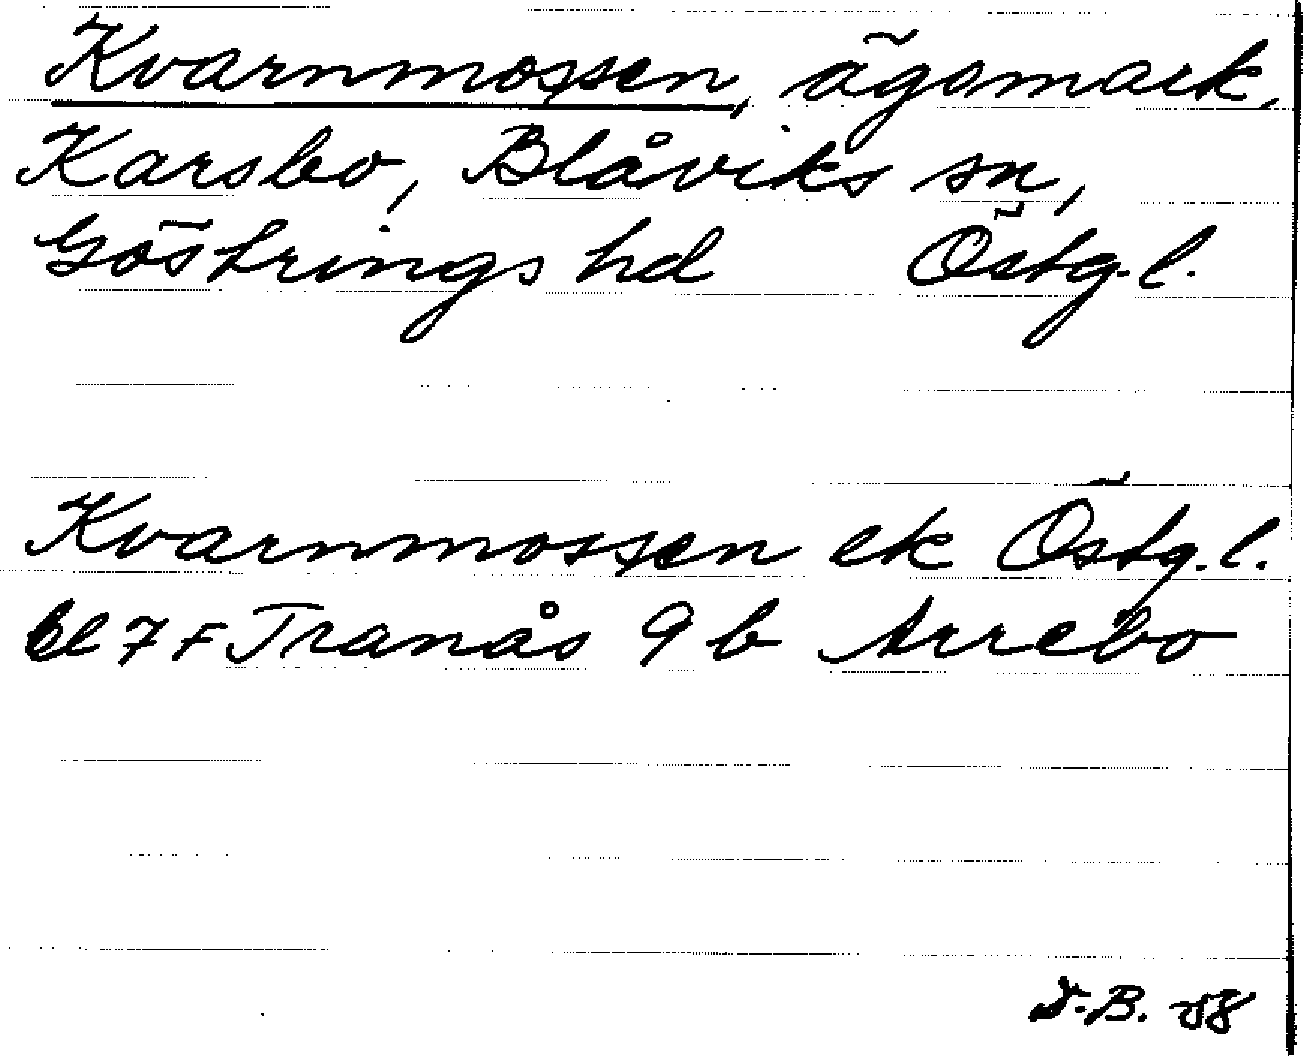 Kvarnmossen, ägomark,
Karsbo, Blåviks sn,
Göstrings hd Östg.l.
Kvarnmossen ek Östg.l.
bl 7 F Tranås 9 b Arrebo
S.B. 88